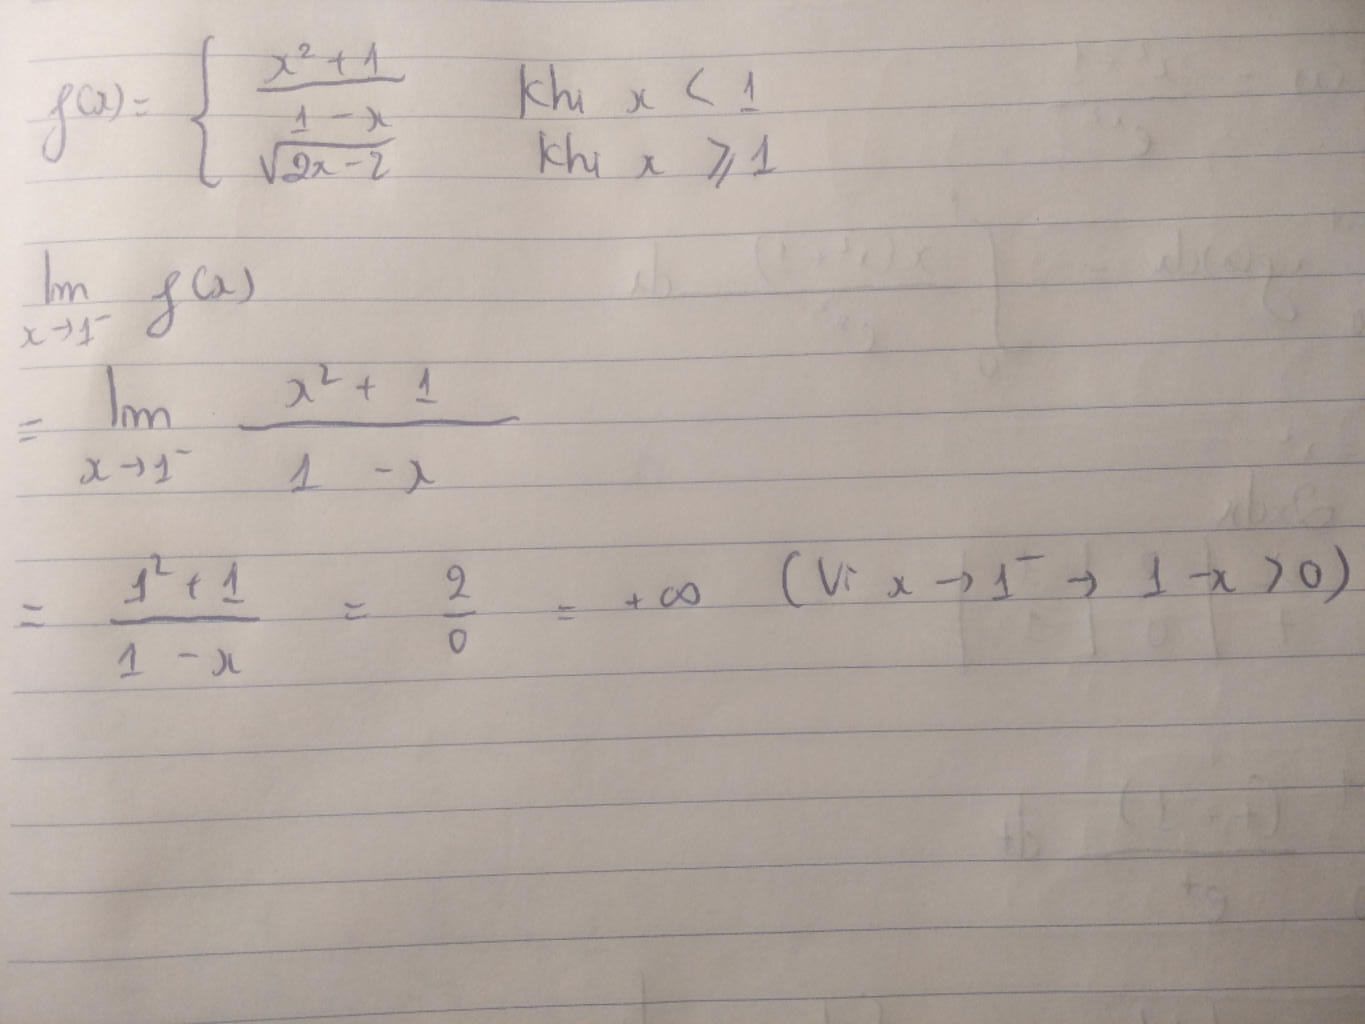 f(x) = { x² + 1 / 1 - x khi x < 1
√2x - 2 khi x ⩾ 1
lim x→1⁻ f(x)
= lim x→1⁻ x² + 1 / 1 - x
= 1² + 1 / 1 - x = 2 / 0 = + ∞ (Vì x → 1⁻ → 1 - x > 0)